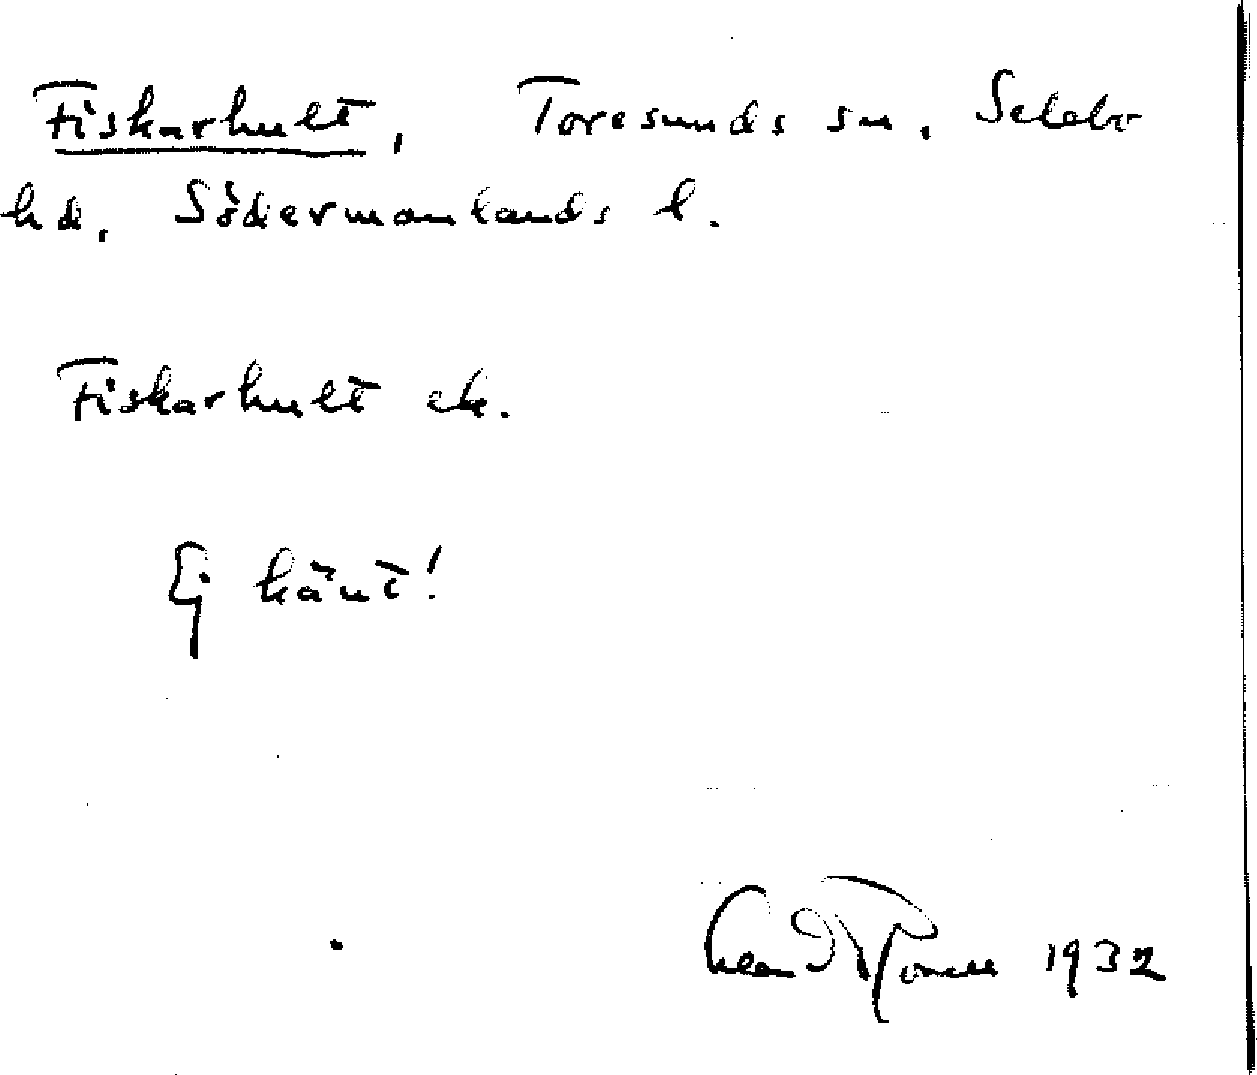 Fiskarhult, Toresunds sn. Selebo
hd, Södermanlands l.
Fiskarhult ek.
Ej känt!
1932